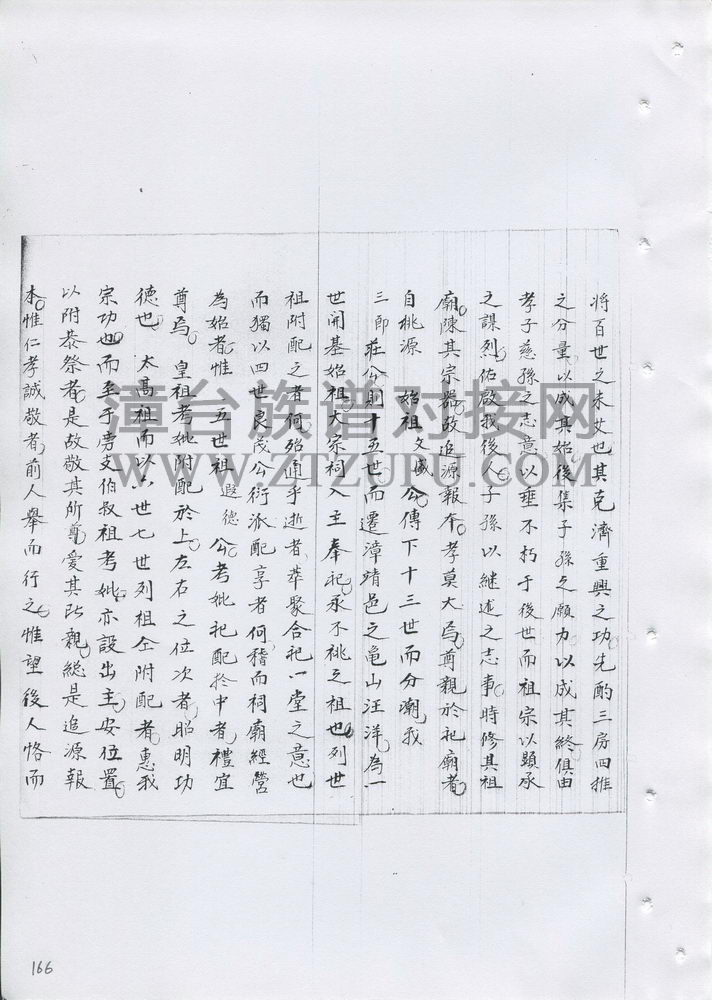 將百世之未艾也其克濟重興之功先酌三房四推
之分量以成其始後集子孫之願力以成其終俱由
孝子慈孫之志意以垂不朽于後世而祖宗以顕承
之謀烈佑啟我後人子孫以継述之志事時修其祖
廟陳其宗器致追源報本孝莫大焉尊親於祀廟者
自桃源 始祖文 公傳下十三世而分潮我
三郎莊公則十五世而遷漳靖邑之亀山汪洋為一
世開基始祖大宗祠入主奉祀永不祧之祖也列世
祖附配之者何殆通乎逝者萃聚合祀一堂之意也
而獨以四世良茂公衍派配享者何稽而祠廟經營
為始者惟 五世祖 遐德公考妣祀配於中者禮宜
尊焉 皇祖考妣附配於上左右之位次者昭明功
德也 太高祖而以六世七世列祖仝附配者惠我
宗功也而至于旁支伯叔祖考妣亦設出主安位置
以附祭者是故敬其所尊愛其所親総是追源報
本惟仁孝誠敬者前人舉而行之惟望後人恪而
漳台族谱对接网
WWW.ZTZUPU.COM
166